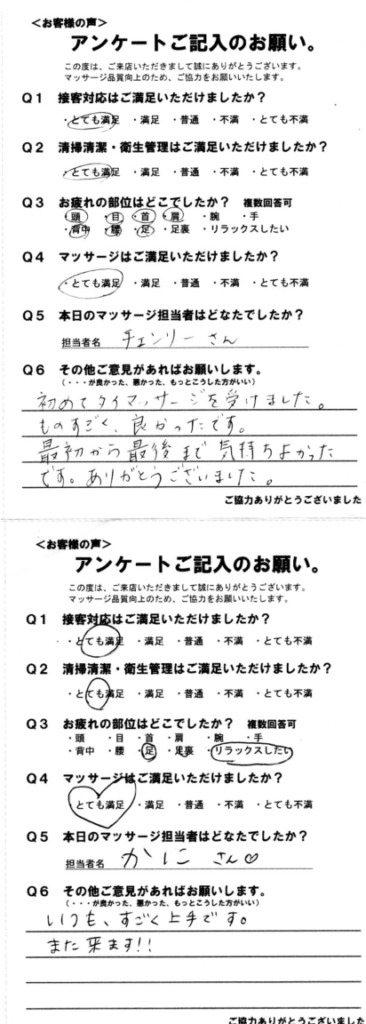 ＜お客様の声＞
アンケートご記入のお願い。
この度は、ご来店いただきまして誠にありがとうございます。
マッサージ品質向上のため、ご協力をお願いいたします。
Q1 接客対応はご満足いただけましたか？
・とても満足 ・満足 ・普通 ・不満 ・とても不満
Q2 清掃清潔・衛生管理はご満足いただけましたか？
・とても満足 ・満足 ・普通 ・不満 ・とても不満
Q3 お疲れの部位はどこでしたか？ 複数回答可
・頭 ・目 ・首 ・肩 ・腕 ・手
・背中 ・腰 ・足 ・足裏 ・リラックスしたい
Q4 マッサージはご満足いただけましたか？
・とても満足 ・満足 ・普通 ・不満 ・とても不満
Q5 本日のマッサージ担当者はどなたでしたか？
担当者名 チェンリーさん
Q6 その他ご意見があればお願いします。
（・・・が良かった、悪かった、もっとこうした方がいい）
初めてタイマッサージを受けました。
ものすごく、良かったです。
最初から最後まで気持ちよかった
です。ありがとうございました。
ご協力ありがとうございました
＜お客様の声＞
アンケートご記入のお願い。
この度は、ご来店いただきまして誠にありがとうございます。
マッサージ品質向上のため、ご協力をお願いいたします。
Q1 接客対応はご満足いただけましたか？
・とても満足 ・満足 ・普通 ・不満 ・とても不満
Q2 清掃清潔・衛生管理はご満足いただけましたか？
・とても満足 ・満足 ・普通 ・不満 ・とても不満
Q3 お疲れの部位はどこでしたか？ 複数回答可
・頭 ・目 ・首 ・肩 ・腕 ・手
・背中 ・腰 ・足 ・足裏 ・リラックスしたい
Q4 マッサージはご満足いただけましたか？
・とても満足 ・満足 ・普通 ・不満 ・とても不満
Q5 本日のマッサージ担当者はどなたでしたか？
担当者名 かに さん♡
Q6 その他ご意見があればお願いします。
（・・・が良かった、悪かった、もっとこうした方がいい）
いつも、すごく上手です。
また来ます!!
ご協力ありがとうございました